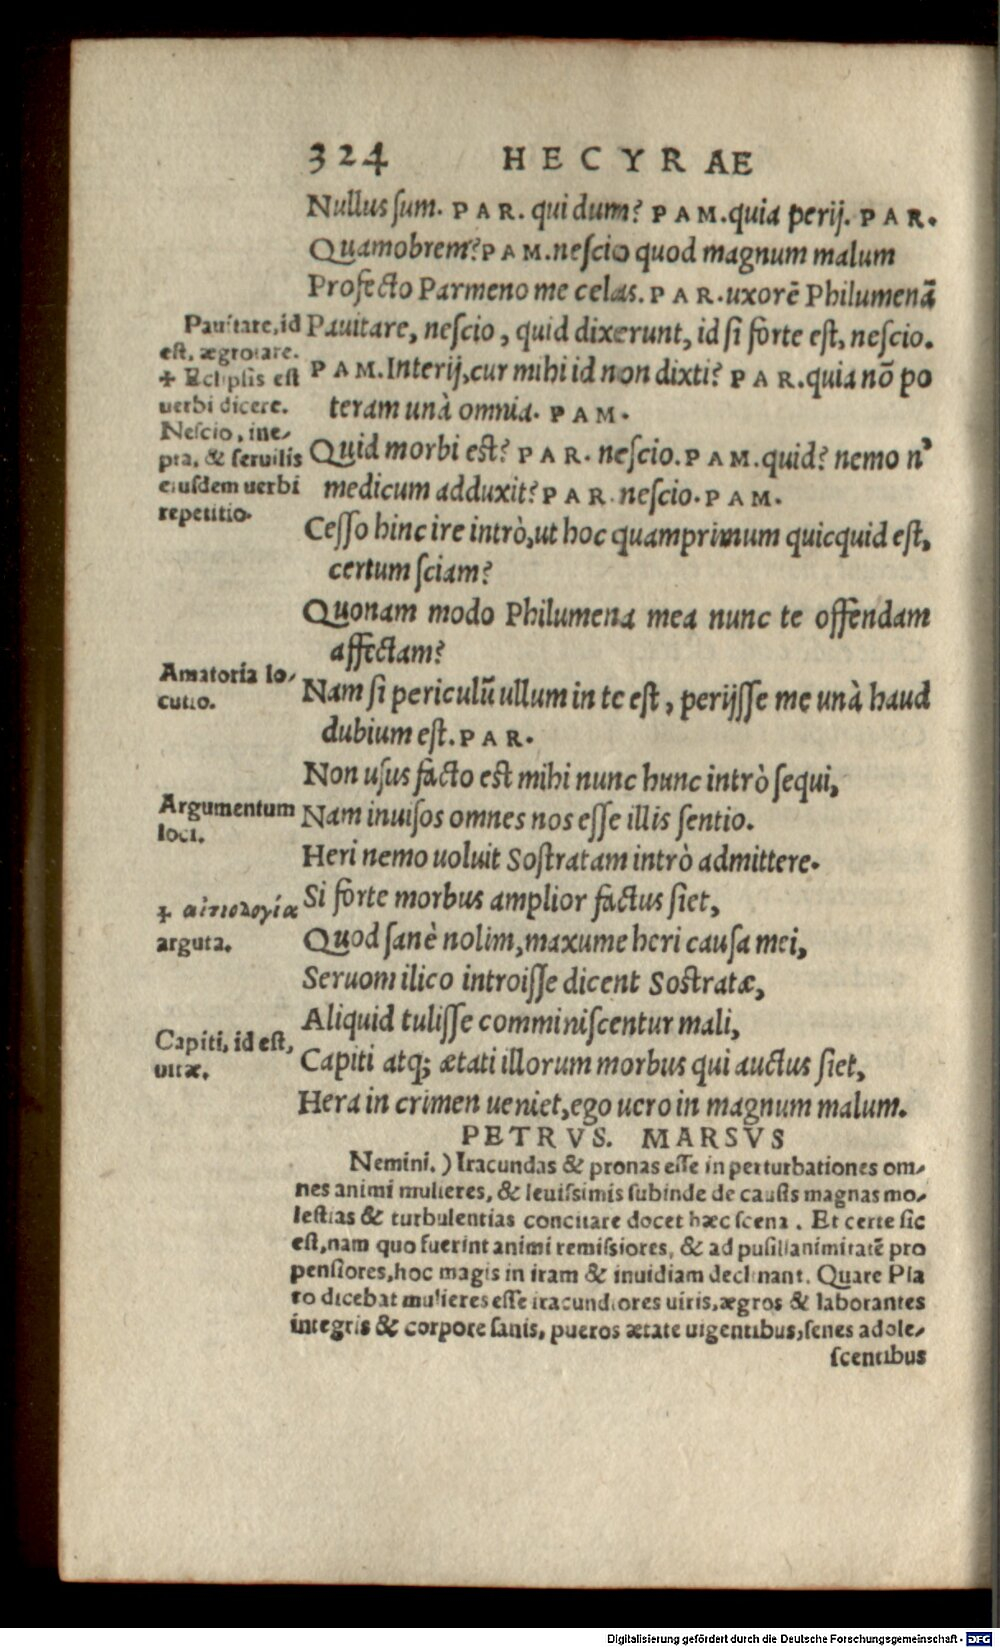 324 HECYRAE
Nullus sum. PAR. qui dum? PAM. quia perij. PAR.
Quamobrem? PAM. nescio quod magnum malum
Profecto Parmeno me celas. PAR. uxorē Philumenā
Pauitare, nescio, quid dixerunt, id si forte est, nescio.
PAM. Interij, cur mihi id non dixti? PAR. quia nō po
teram unà omnia. PAM.
Quid morbi est? PAR. nescio. PAM. quid? nemo n’
medicum adduxit? PAR. nescio. PAM.
Cesso hinc ire intrò, ut hoc quamprimum quicquid est,
certum sciam?
Quonam modo Philumena mea nunc te offendam
affectam?
Nam si periculū ullum in te est, perijsse me unà haud
dubium est. PAR.
Non usus facto est mihi nunc hunc intrò sequi,
Nam inuisos omnes nos esse illis sentio.
Heri nemo uoluit Sostratam intrò admittere.
Si forte morbus amplior factus siet,
Quod sanè nolim, maxume heri causa mei,
Seruom ilico introisse dicent Sostratæ,
Aliquid tulisse comminiscentur mali,
Capiti atq; ætati illorum morbus qui auctus siet,
Hera in crimen ueniet, ego uero in magnum malum.
Pauitare, id
est, ægrotare.
✢ Eclipsis est
uerbi dicere.
Nescio, ine⸗
pta, & seruilis
eiusdem uerbi
repetitio.
Amatoria lo⸗
cutio.
Argumentum
loci.
✢ αἰτιολογία
arguta.
Capiti, id est,
uitæ.
PETRVS. MARSVS
Nemini.) Iracundas & pronas esse in perturbationes om⸗
nes animi mulieres, & leuissimis subinde de causis magnas mo⸗
lestias & turbulentias concitare docet hæc scena. Et certe sic
est, nam quo fuerint animi remissiores, & ad pusillanimitatē pro
pensiores, hoc magis in iram & inuidiam declinant. Quare Pla
to dicebat mulieres esse iracundiores uiris, ægros & laborantes
integris & corpore sanis, pueros ætate uigentibus, senes adole⸗
scentibus
Digitalisierung gefördert durch die Deutsche Forschungsgemeinschaft - DFG